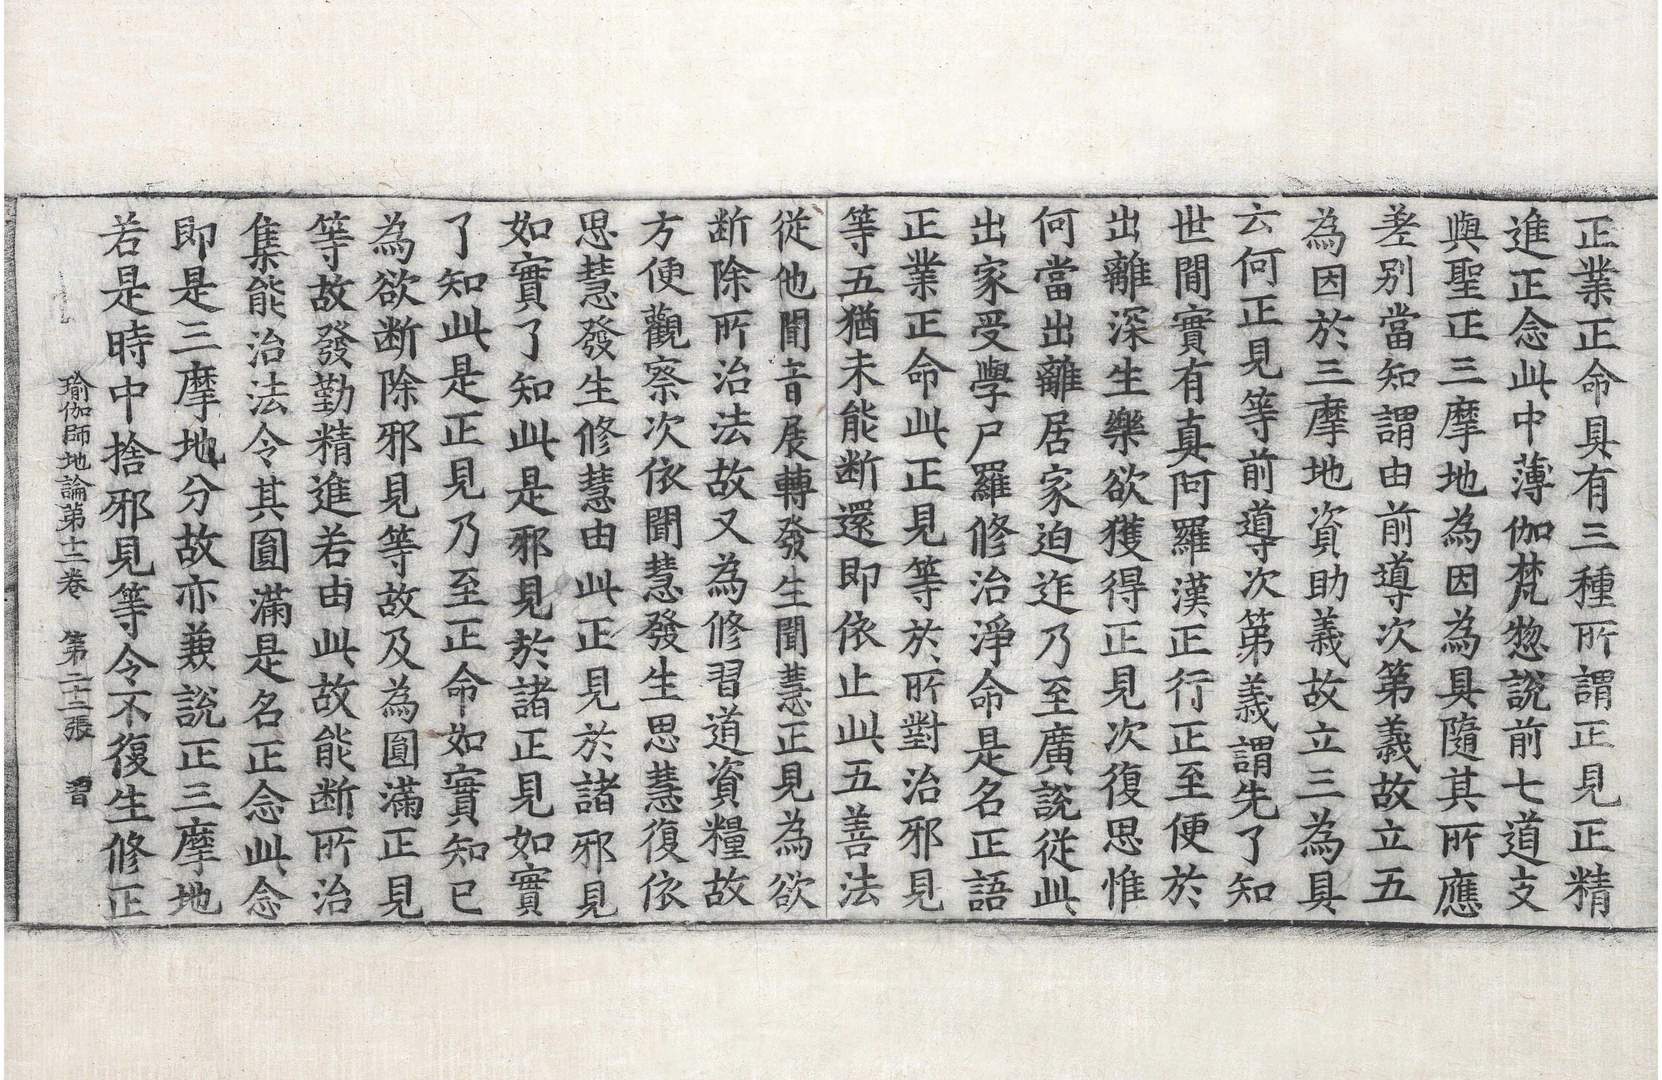 正業正命具有三種所謂正見正精
進正念此中薄伽梵惣說前七道支
與聖正三摩地為因為具隨其所應
差別當知謂由前導次第義故立五
為因於三摩地資助義故立三為具
云何正見等前導次第義謂先了知
世間實有真阿羅漢正行正至便於
出離深生樂欲獲得正見次復思惟
何當出離居家迫迮乃至廣說從此
出家受學尸羅修治淨命是名正語
正業正命此正見等於所對治邪見
等五猶未能断還即依止此五善法
從他聞音展轉發生聞慧正見為欲
断除所治法故又為修習道資糧故
方便觀察次依聞慧發生思慧復依
思慧發生修慧由此正見於諸邪見
如實了知此是邪見於諸正見如實
了知此是正見乃至正命如實知已
為欲断除邪見等故及為圎滿正見
等故發勤精進若由此故能断所治
集能治法令其圎滿是名正念此念
即是三摩地分故亦兼說正三摩地
若是時中捨邪見等令不復生修正
瑜伽師地論第十二卷 第二十二張 習